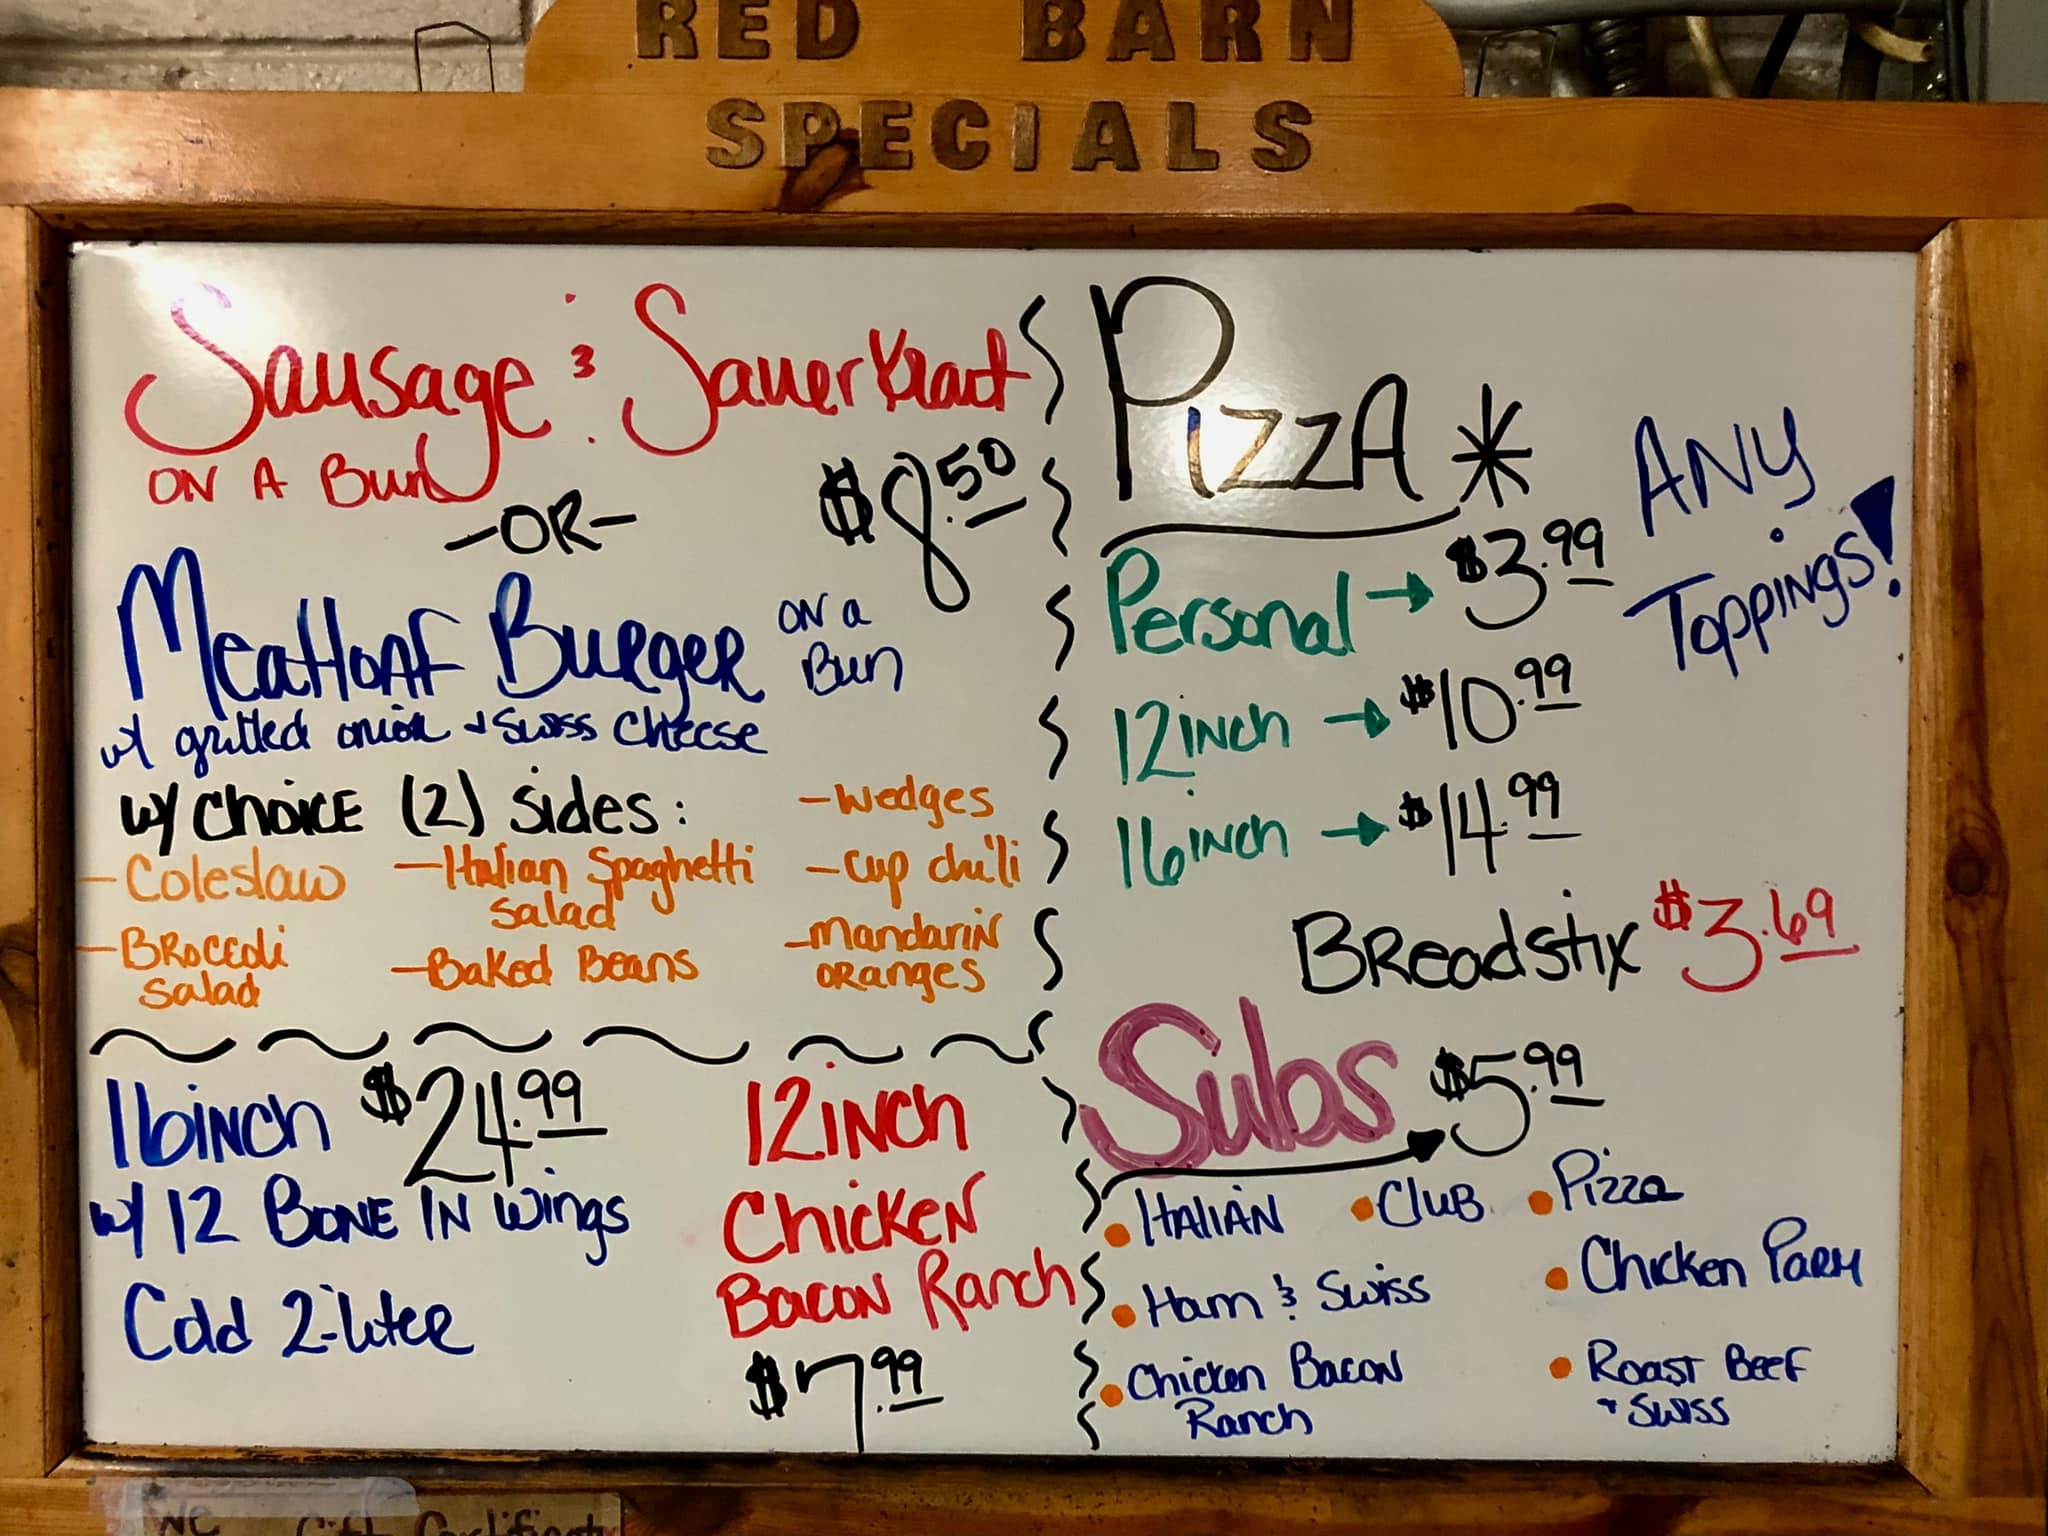 RED BARN
SPECIALS
Sausage & Sauerkraut
ON A Bun
$8.50
-OR-
Meatloaf Burger
ON a
Bun
w/ grilled onion + Swiss Cheese
w/ CHOICE (2) sides:
- Coleslaw
- Broccoli
Salad
- Italian Spaghetti
Salad
- Baked Beans
- Wedges
- Cup chili
- Mandarin
oranges
16 inch $24.99
w/ 12 BONE IN Wings
Cold 2-liter
12 inch
Chicken
Bacon Ranch
$7.99
PIZZA *
ANY
Toppings!
Personal → $3.99
12 inch → $10.99
16 inch → $14.99
Breadstix $3.69
Subs $5.99
• ITALIAN
• Club
• Pizza
• Ham & Swiss
• Chicken Parm
• Chicken Bacon
Ranch
• Roast Beef
+ Swiss
We Gift Certificate